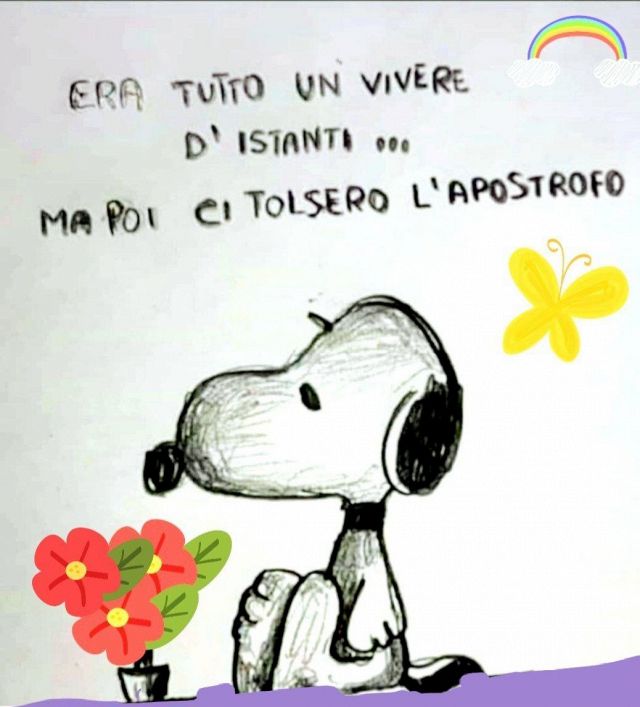 ERA TUTTO UN VIVERE
D' ISTANTI ...
MA POI CI TOLSERO L'APOSTROFO